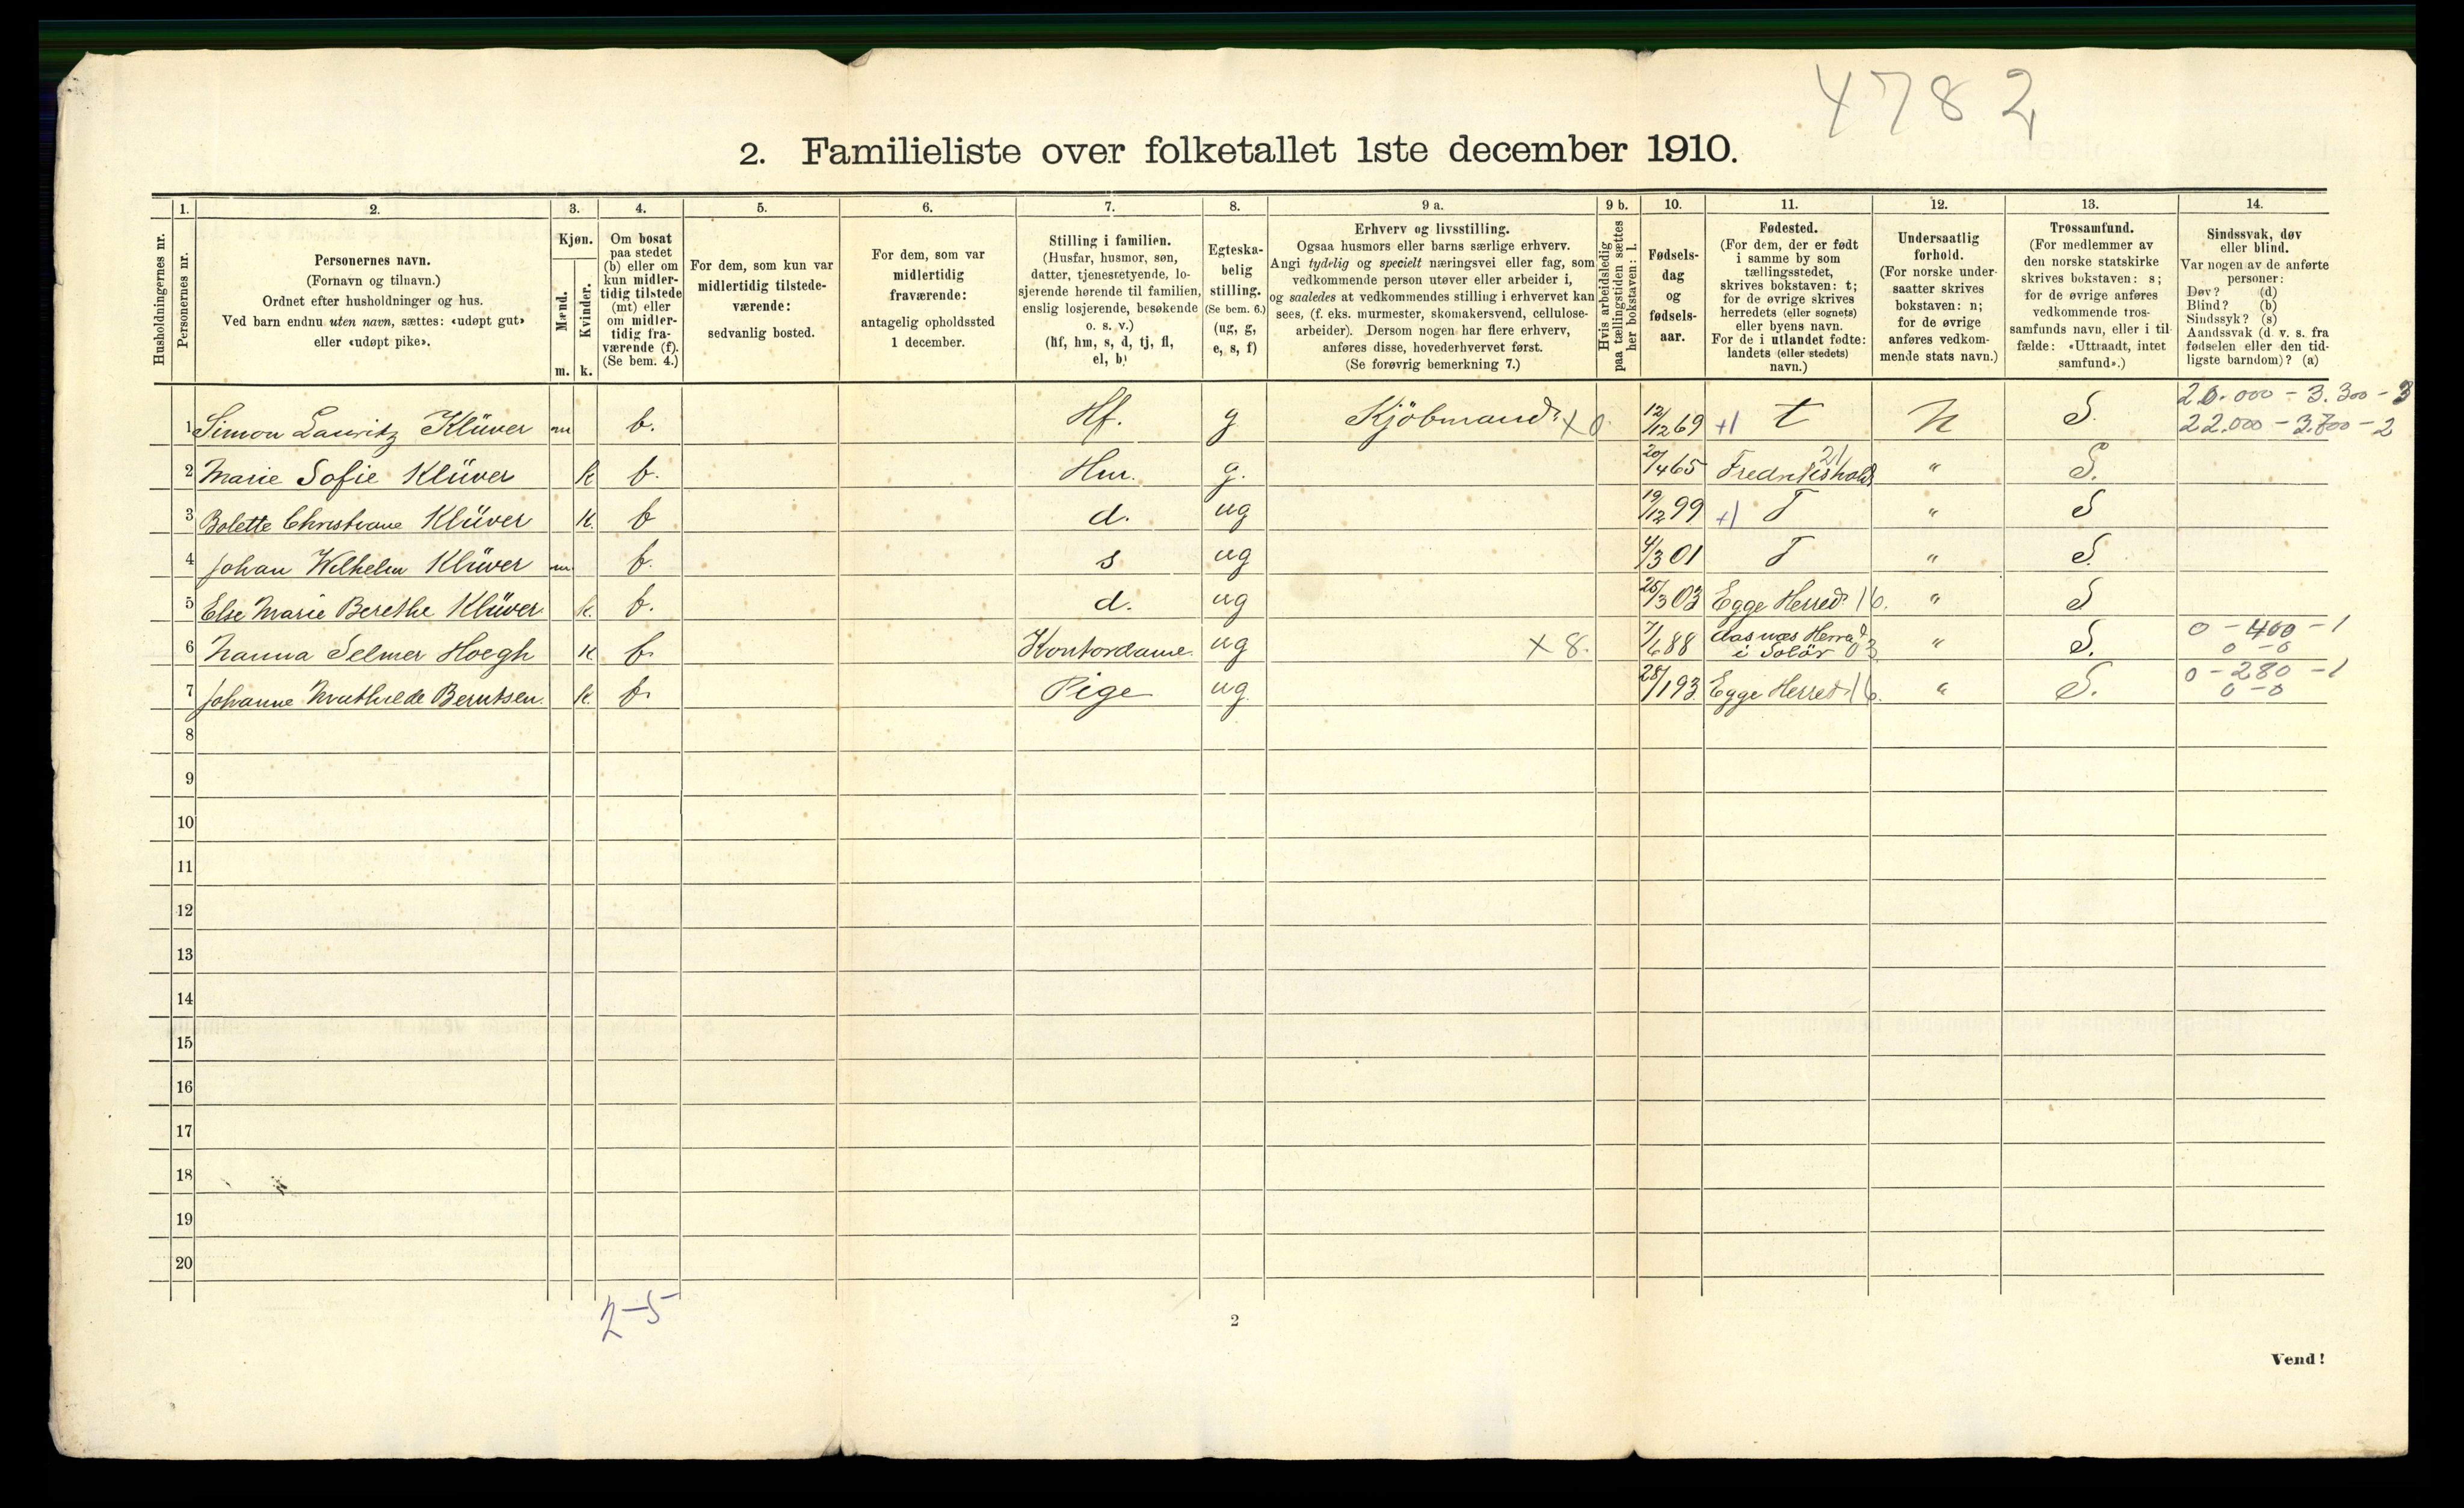 4782
2. Familieliste over folketallet 1ste december 1910.
Husholdningernes nr.
1.
Personernes nr.
2.
Personernes navn.
(Fornavn og tilnavn.)
Ordnet efter husholdninger og hus.
Ved barn endnu uten navn, sættes: «udøpt gut»
eller «udøpt pike».
3.
Kjøn.
Mænd.
Kvinder.
m. k.
4.
Om bosat
paa stedet
(b) eller om
kun midler-
tidig tilstede
(mt) eller
om midler-
tidig fra-
værende (f).
(Se bem. 4.)
5.
For dem, som kun var
midlertidig tilstede-
værende:
sedvanlig bosted.
6.
For dem, som var
midlertidig
fraværende:
antagelig opholdssted
1 december.
7.
Stilling i familien.
(Husfar, husmor, søn,
datter, tjenestetyende, lo-
sjerende hørende til familien,
enslig losjerende, besøkende
o. s. v.)
(hf, hm, s, d, tj, fl,
el, b)
8.
Egteska-
belig
stilling.
(Se bem. 6.)
(ug, g,
e, s, f)
9 a.
Erhverv og livsstilling.
Ogsaa husmors eller barns særlige erhverv.
Angi tydelig og specielt næringsvei eller fag, som
vedkommende person utøver eller arbeider i,
og saaledes at vedkommendes stilling i erhvervet kan
sees, (f. eks. murmester, skomakersvend, cellulose-
arbeider). Dersom nogen har flere erhverv,
anføres disse, hovederhvervet først.
(Se forøvrig bemerkning 7.)
9 b.
Hvis arbeidsledig
paa tællingstiden sættes
her bokstaven: l.
10.
Fødsels-
dag
og
fødsels-
aar.
11.
Fødested.
(For dem, der er født
i samme by som
tællingsstedet,
skrives bokstaven: t;
for de øvrige skrives
herredets (eller sognets)
eller byens navn.
For de i utlandet fødte:
landets (eller stedets)
navn.)
12.
Undersaatlig
forhold.
(For norske under-
saatter skrives
bokstaven: n;
for de øvrige
anføres vedkom-
mende stats navn.)
13.
Trossamfund.
(For medlemmer av
den norske statskirke
skrives bokstaven: s;
for de øvrige anføres
vedkommende tros-
samfunds navn, eller i til-
fælde: «Uttraadt, intet
samfund».)
14.
Sindssvak, døv
eller blind.
Var nogen av de anførte
personer:
Døv? (d)
Blind? (b)
Sindssyk? (s)
Aandssvak (d. v. s. fra
fødselen eller den tid-
ligste barndom)? (a)
1 Simon Lauritz Klüver m b. Hf. g Kjöbmand x0 12/12 69 +1 t N S. 20.000 - 3.300 - 3
22.000 - 3.700 - 2
2 Marie Sofie Klüver k b. Hm. g. 20/4 65 Fredrikshald 21 " S.
3 Bolette Christiane Klüver k. b d. ug 19/12 99 +1 T " S
4 Johan Wilhelm Klüver m b. s ug 4/3 01 T " S.
5 Else Marie Berethe Klüver k. b. d. ug 25/3 03 Egge Herred 16. " S
6 Nanna Selmer Hoegh k b. Kontordame. ug x 8. 7/6 88 Aasnæs Herred
i Solör 03 " S. 0 - 400 - 1
0 - 0
7 Johanne Mathilde Berntsen. k. b. Pige ug. 28/1 93 Egge Herred 16. " S. 0 - 280 - 1
0 - 0
8
9
10
11
12
13
14
15
16
17
18
19
20
2-5
2
Vend!